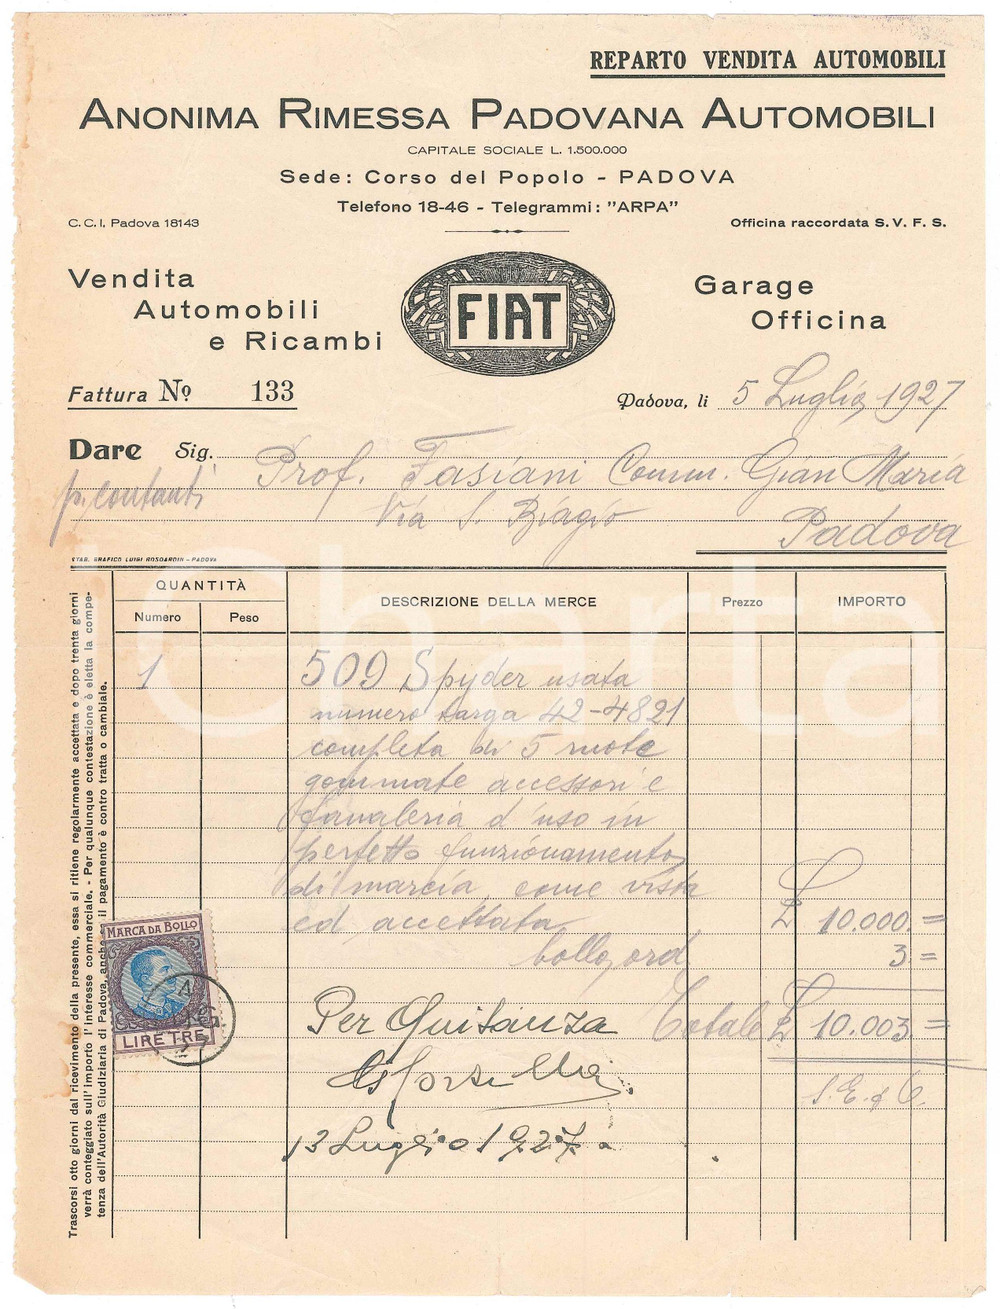 REPARTO VENDITA AUTOMOBILI
ANONIMA RIMESSA PADOVANA AUTOMOBILI
CAPITALE SOCIALE L. 1.500.000
Sede: Corso del Popolo - PADOVA
Telefono 18-46 - Telegrammi: "ARPA"
C. C. I. Padova 18143
Officina raccordata S. V. F. S.
Vendita
Automobili
e Ricambi
FIAT
Garage
Officina
Fattura Nº 133
Padova, li 5 Luglio 1927
Dare Sig. Prof. Fasiani Comm. Gian Maria
p. contanti
Via S. Biagio
Padova
STAB. GRAFICO LUIGI BOSCARDIN - PADOVA
QUANTITÀ
Numero
Peso
DESCRIZIONE DELLA MERCE
Prezzo
IMPORTO
1 509 Spyder usata
numero targa 42-4821
completa di 5 ruote
gommate accessori e
fanaleria d'uso in
perfetto funzionamento
di marcia, come vista
ed accettata £ 10.000.=
bollo ord 3=
Totale £ 10.003.=
Per Quitanza
S. E. & O.
13 Luglio 1927
MARCA DA BOLLO
LIRE TRE
Trascorsi otto giorni dal ricevimento della presente, essa si ritiene regolarmente accettata e dopo trenta giorni
verrà conteggiato sull'importo l'interesse commerciale. - Per qualunque contestazione è eletta la compe-
tenza dell'Autorità Giudiziaria di Padova, anche il pagamento è contro tratta o cambiale.
Charta